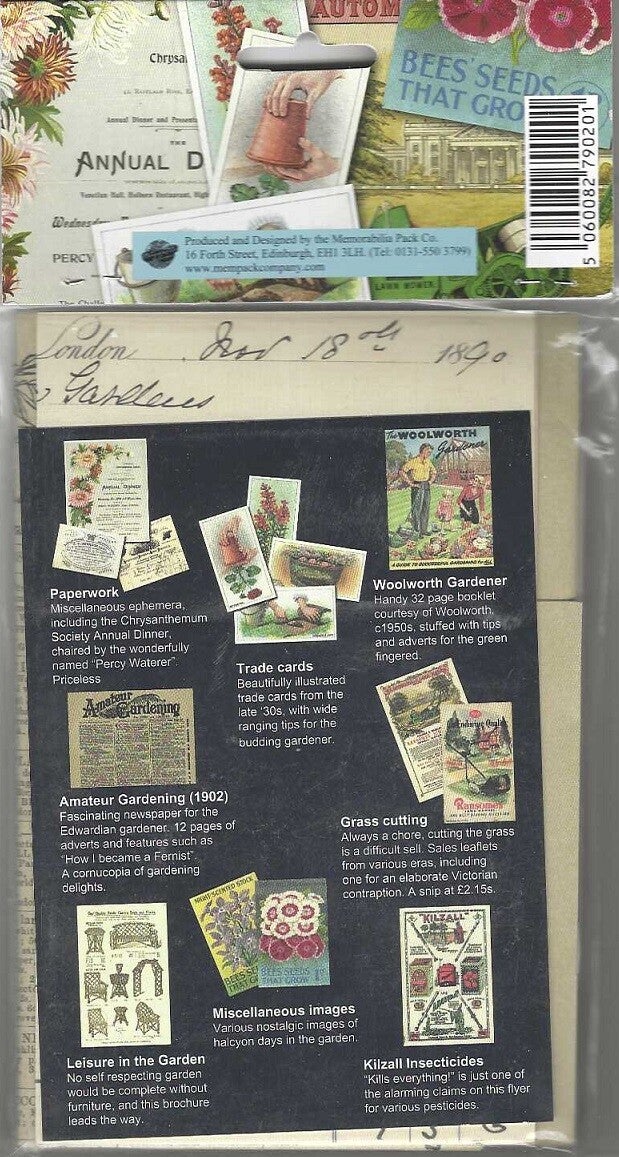 AUTOM
Chrysa
BEES' SEEDS
THAT GRO
Annual Dinner and Present
THE
ANNUAL D
Venetian Hall, Holborn Restaurant, High
Wednesday
PERCY
Produced and Designed by the Memorabilia Pack Co.
16 Forth Street, Edinburgh, EH1 3LH. (Tel: 0131-550 3799)
www.mempackcompany.com
LAWN MOWER
5 060082 790201
London Nov 18 1890
Gardens
Paperwork
Miscellaneous ephemera,
including the Chrysanthemum
Society Annual Dinner,
chaired by the wonderfully
named "Percy Waterer".
Priceless
Trade cards
Beautifully illustrated
trade cards from the
late '30s, with wide
ranging tips for the
budding gardener.
The WOOLWORTH
Gardener
A GUIDE TO SUCCESSFUL GARDENING for ALL
Woolworth Gardener
Handy 32 page booklet
courtesy of Woolworth,
c1950s, stuffed with tips
and adverts for the green
fingered.
Amateur
Gardening
Amateur Gardening (1902)
Fascinating newspaper for the
Edwardian gardener. 12 pages of
adverts and features such as
"How I became a Fernist".
A cornucopia of gardening
delights.
Ransomes
Grass cutting
Always a chore, cutting the grass
is a difficult sell. Sales leaflets
from various eras, including
one for an elaborate Victorian
contraption. A snip at £2.15s.
Leisure in the Garden
No self respecting garden
would be complete without
furniture, and this brochure
leads the way.
NIGHT-SCENTED STOCK
BEES SEEDS
THAT GROW
Miscellaneous images
Various nostalgic images of
halcyon days in the garden.
"KILZALL"
Kilzall Insecticides
"Kills everything!" is just one of
the alarming claims on this flyer
for various pesticides.